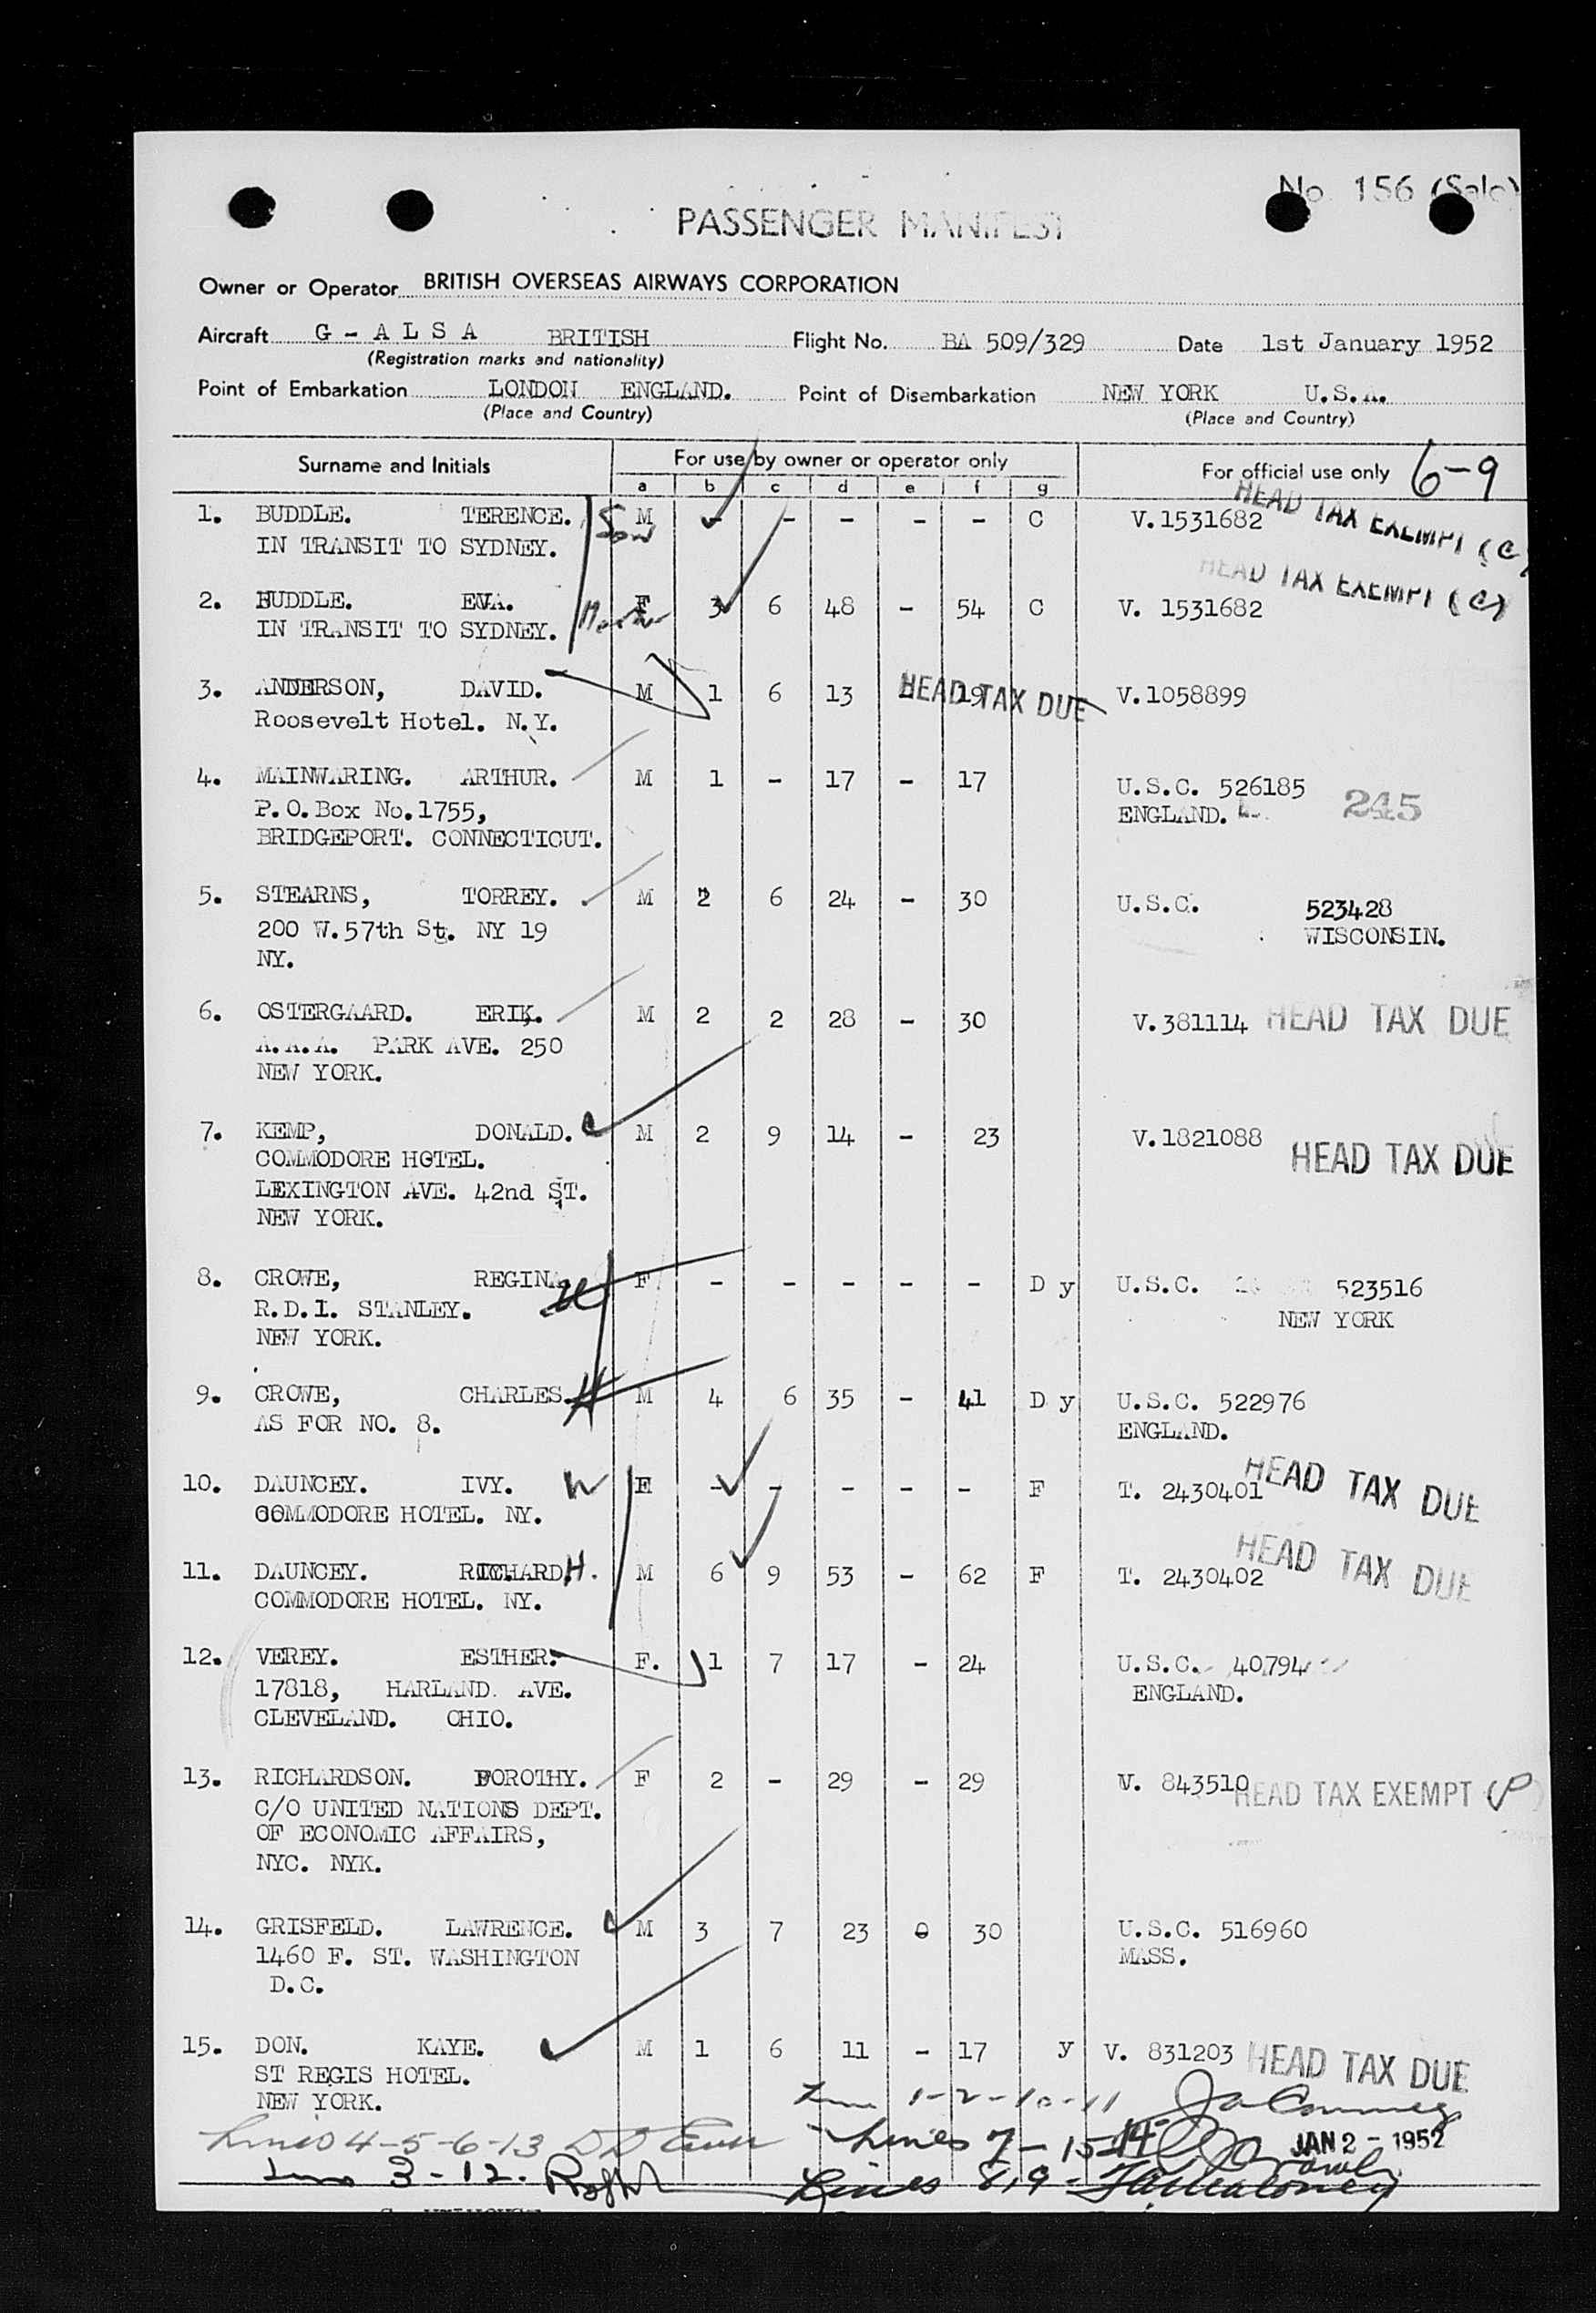 No. 156 (Sale)
PASSENGER MANIFEST
Owner or Operator BRITISH OVERSEAS AIRWAYS CORPORATION
Aircraft G - A L S A BRITISH Flight No. BA 509/329 Date 1st January 1952
(Registration marks and nationality)
Point of Embarkation LONDON ENGLAND. Point of Disembarkation NEW YORK U.S.A.
(Place and Country) (Place and Country)
Surname and Initials For use by owner or operator only For official use only 6-9
a b c d e f g
1. BUDDLE. TERENCE. Son M - - - - - C V.1531682 HEAD TAX EXEMPT (C)
IN TRANSIT TO SYDNEY.
2. BUDDLE. EVA. Mother F 3 6 48 - 54 C V. 1531682 HEAD TAX EXEMPT (C)
IN TRANSIT TO SYDNEY.
3. ANDERSON, DAVID. M 1 6 13 - 19 HEAD TAX DUE V.1058899
Roosevelt Hotel. N.Y.
4. MAINWARING. ARTHUR. M 1 - 17 - 17 U.S.C. 526185
P.O.Box No.1755, ENGLAND. 245
BRIDGEPORT. CONNECTICUT.
5. STEARNS, TORREY. M 2 6 24 - 30 U.S.C. 523428
200 W.57th St. NY 19 WISCONSIN.
NY.
6. OSTERGAARD. ERIK. M 2 2 28 - 30 V.381114 HEAD TAX DUE
A.A.A. PARK AVE. 250
NEW YORK.
7. KEMP, DONALD. M 2 9 14 - 23 V.1821088 HEAD TAX DUE
COMMODORE HOTEL.
LEXINGTON AVE. 42nd ST.
NEW YORK.
8. CROWE, REGINA W F - - - - - D y U.S.C. 523516
R.D.I. STANLEY. NEW YORK
NEW YORK.
9. CROWE, CHARLES. H M 4 6 35 - 41 D y U.S.C. 522976
AS FOR NO. 8. ENGLAND.
10. DAUNCEY. IVY. W F - - - - - F T. 2430401 HEAD TAX DUE
COMMODORE HOTEL. NY.
11. DAUNCEY. RICHARD. H. M 6 9 53 - 62 F T. 2430402 HEAD TAX DUE
COMMODORE HOTEL. NY.
12. VEREY. ESTHER. F. 1 7 17 - 24 U.S.C. 40794
17818, HARLAND AVE. ENGLAND.
CLEVELAND. OHIO.
13. RICHARDSON. DOROTHY. F 2 - 29 - 29 V. 843510 HEAD TAX EXEMPT
C/O UNITED NATIONS DEPT.
OF ECONOMIC AFFAIRS,
NYC. NYK.
14. GRISFELD. LAWRENCE. M 3 7 23 0 30 U.S.C. 516960
1460 F. ST. WASHINGTON MASS.
D.C.
15. DON. KAYE. M 1 6 11 - 17 y V. 831203 HEAD TAX DUE
ST REGIS HOTEL.
NEW YORK.
1-2-10-11
Lines 4-5-6-13 Lines 7-15-14 JAN 2 - 1952
3-12. Lines 8,9